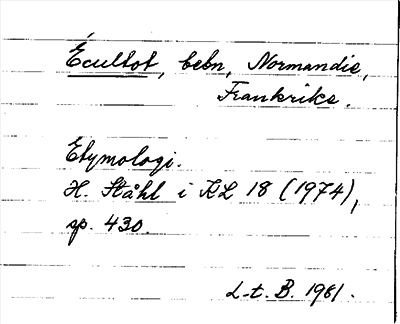 Écultot, bebn, Normandie,
Frankrike.
Etymologi.
H. Ståhl i KL 18 (1974),
sp. 430.
L-t. B. 1981.